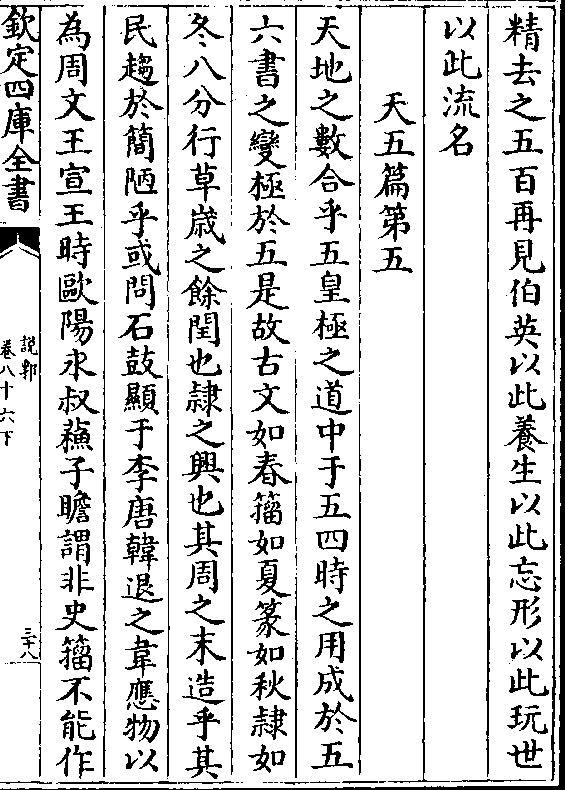 精去之五百再見伯英以此養生以此忘形以此玩世
以此流名
天五篇第五
天地之數合乎五皇極之道中于五四時之用成於五
六書之變極於五是故古文如春籀如夏篆如秋隷如
冬八分行草嵗之餘閏也隷之興也其周之末造乎其
民趨於簡陋乎或問石鼓顯于李唐韓退之韋應物以
為周文王宣王時歐陽永叔蘓子瞻謂非史籀不能作
欽定四庫全書
説郛
卷八十六下
三十八